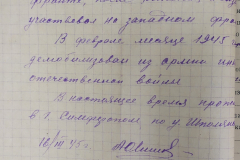 участвовал на западном фрон
В феврале месяце 1945
демобилизован из армии ин
отечественной войны
В настоящее время прож
в г. Симферополе по у.
16/III.45г.